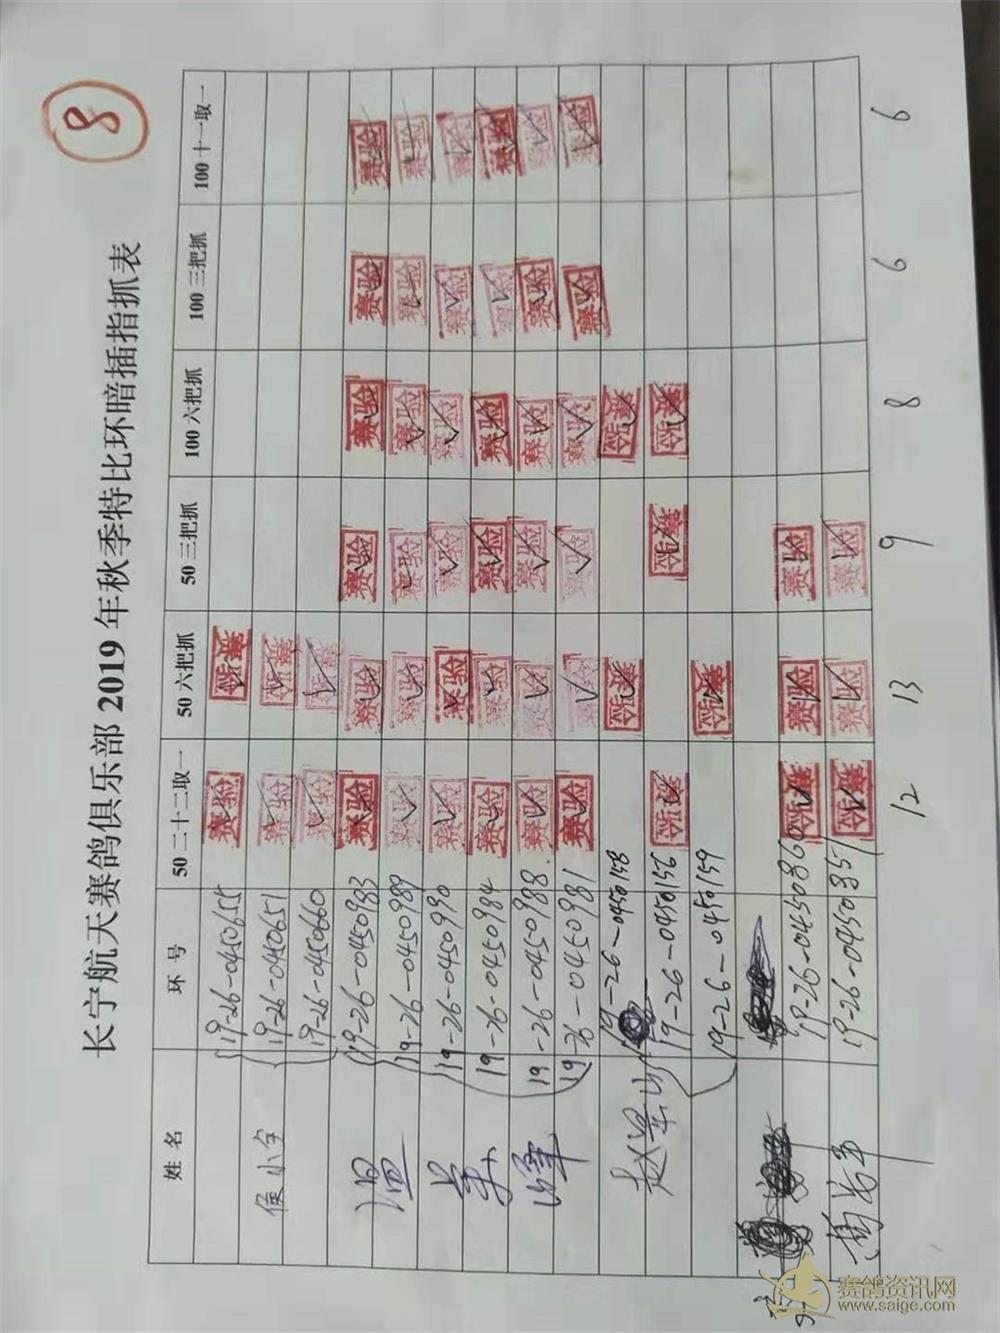 8
长宁航天赛鸽俱乐部2019年秋季特比环暗插指抓表
姓名 环号 50二十二取一 50六把抓 50三把抓 100六把抓 100三把抓 100十一取一
19-26-0450655 赛验 赛验
侯小宇 19-26-0450651 赛验 赛验
19-26-0450660 赛验 赛验
温 19-26-0450983 赛验 赛验 赛验 赛验 赛验 赛验
19-26-0450989 赛验 赛验 赛验 赛验 赛验 赛验
19-26-0450990 赛验 赛验 赛验 赛验 赛验 赛验
19-26-0450984 赛验 赛验 赛验 赛验 赛验 赛验
19-26-0450988 赛验 赛验 赛验 赛验 赛验 赛验
19-26-0450981 赛验 赛验 赛验 赛验 赛验 赛验
赵 19-26-0450158 赛验 赛验
19-26-0450156 赛验 赛验 赛验
19-26-0450159 赛验
19-26-0450860 赛验 赛验 赛验
19-26-0450857 赛验 赛验 赛验
12 13 9 8 6 6
赛鸽资讯网
www.saige.com